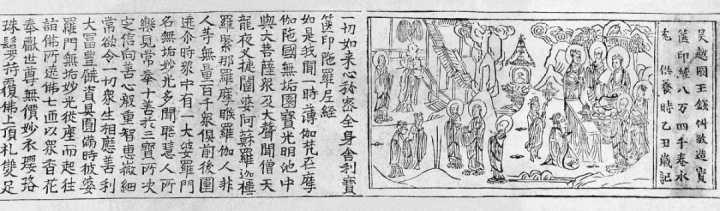 吴越國王錢俶敬造寶
篋印經八万四千卷永
充供養時乙丑歲記
一切如來心秘密全身舍利寶
篋印陀羅尼經
如是我聞一時薄伽梵在摩
伽陀國無垢園寶光明池中
與大菩薩衆及大聲聞僧天
龍夜叉揵闥婆阿蘇羅迦樓
羅緊那羅摩睺羅伽人非
人等無量百千衆俱前後圍
遶尒時衆中有一大婆羅門
名無垢妙光多聞聰慧人所
樂見常奉十善於三寶所決
定信向善心殷重智惠微細
常欲令一切衆生相應善利
大富豐饒資具圓滿時彼婆
羅門無垢妙光從座而起往
詣佛所遶佛七匝以衆香花
奉獻世尊無價妙衣瓔珞
珠鬘等持覆佛上頂礼雙足